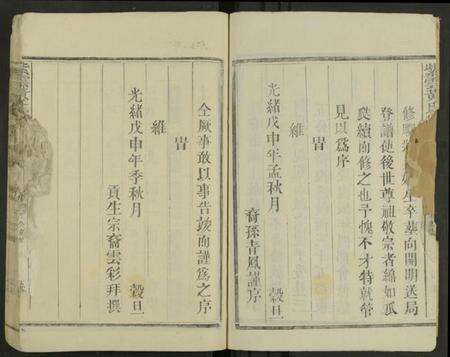 修
生卒葬向開明送局
登譜使後世尊祖敬宗者綿如瓜
瓞續而修之也予愧不才特就管
見以爲序
胄
維
光緒戊申年孟秋月　穀旦
裔孫青鳳謹序
全厥事敢以事告竣而謹爲之序
胄
維
光緒戊申年季秋月　穀旦
貢生宗裔雲彩拜撰